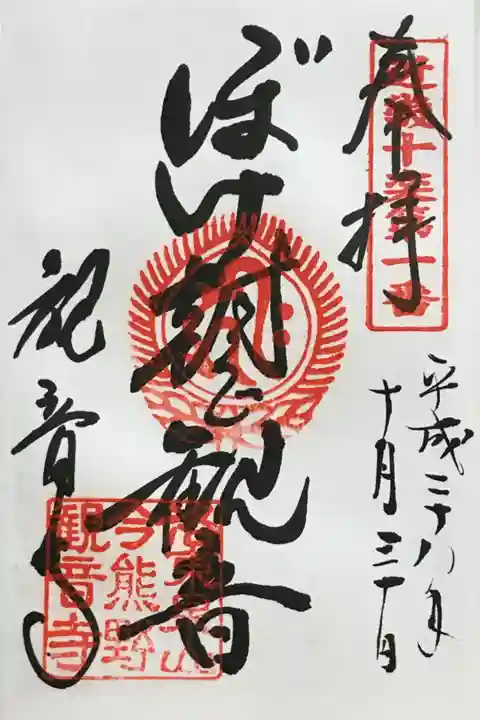 奉拝
近畿十楽観音一番
平成二十八年
十月三十日
ぼけ封じ観音
今熊野
観音寺
観音寺